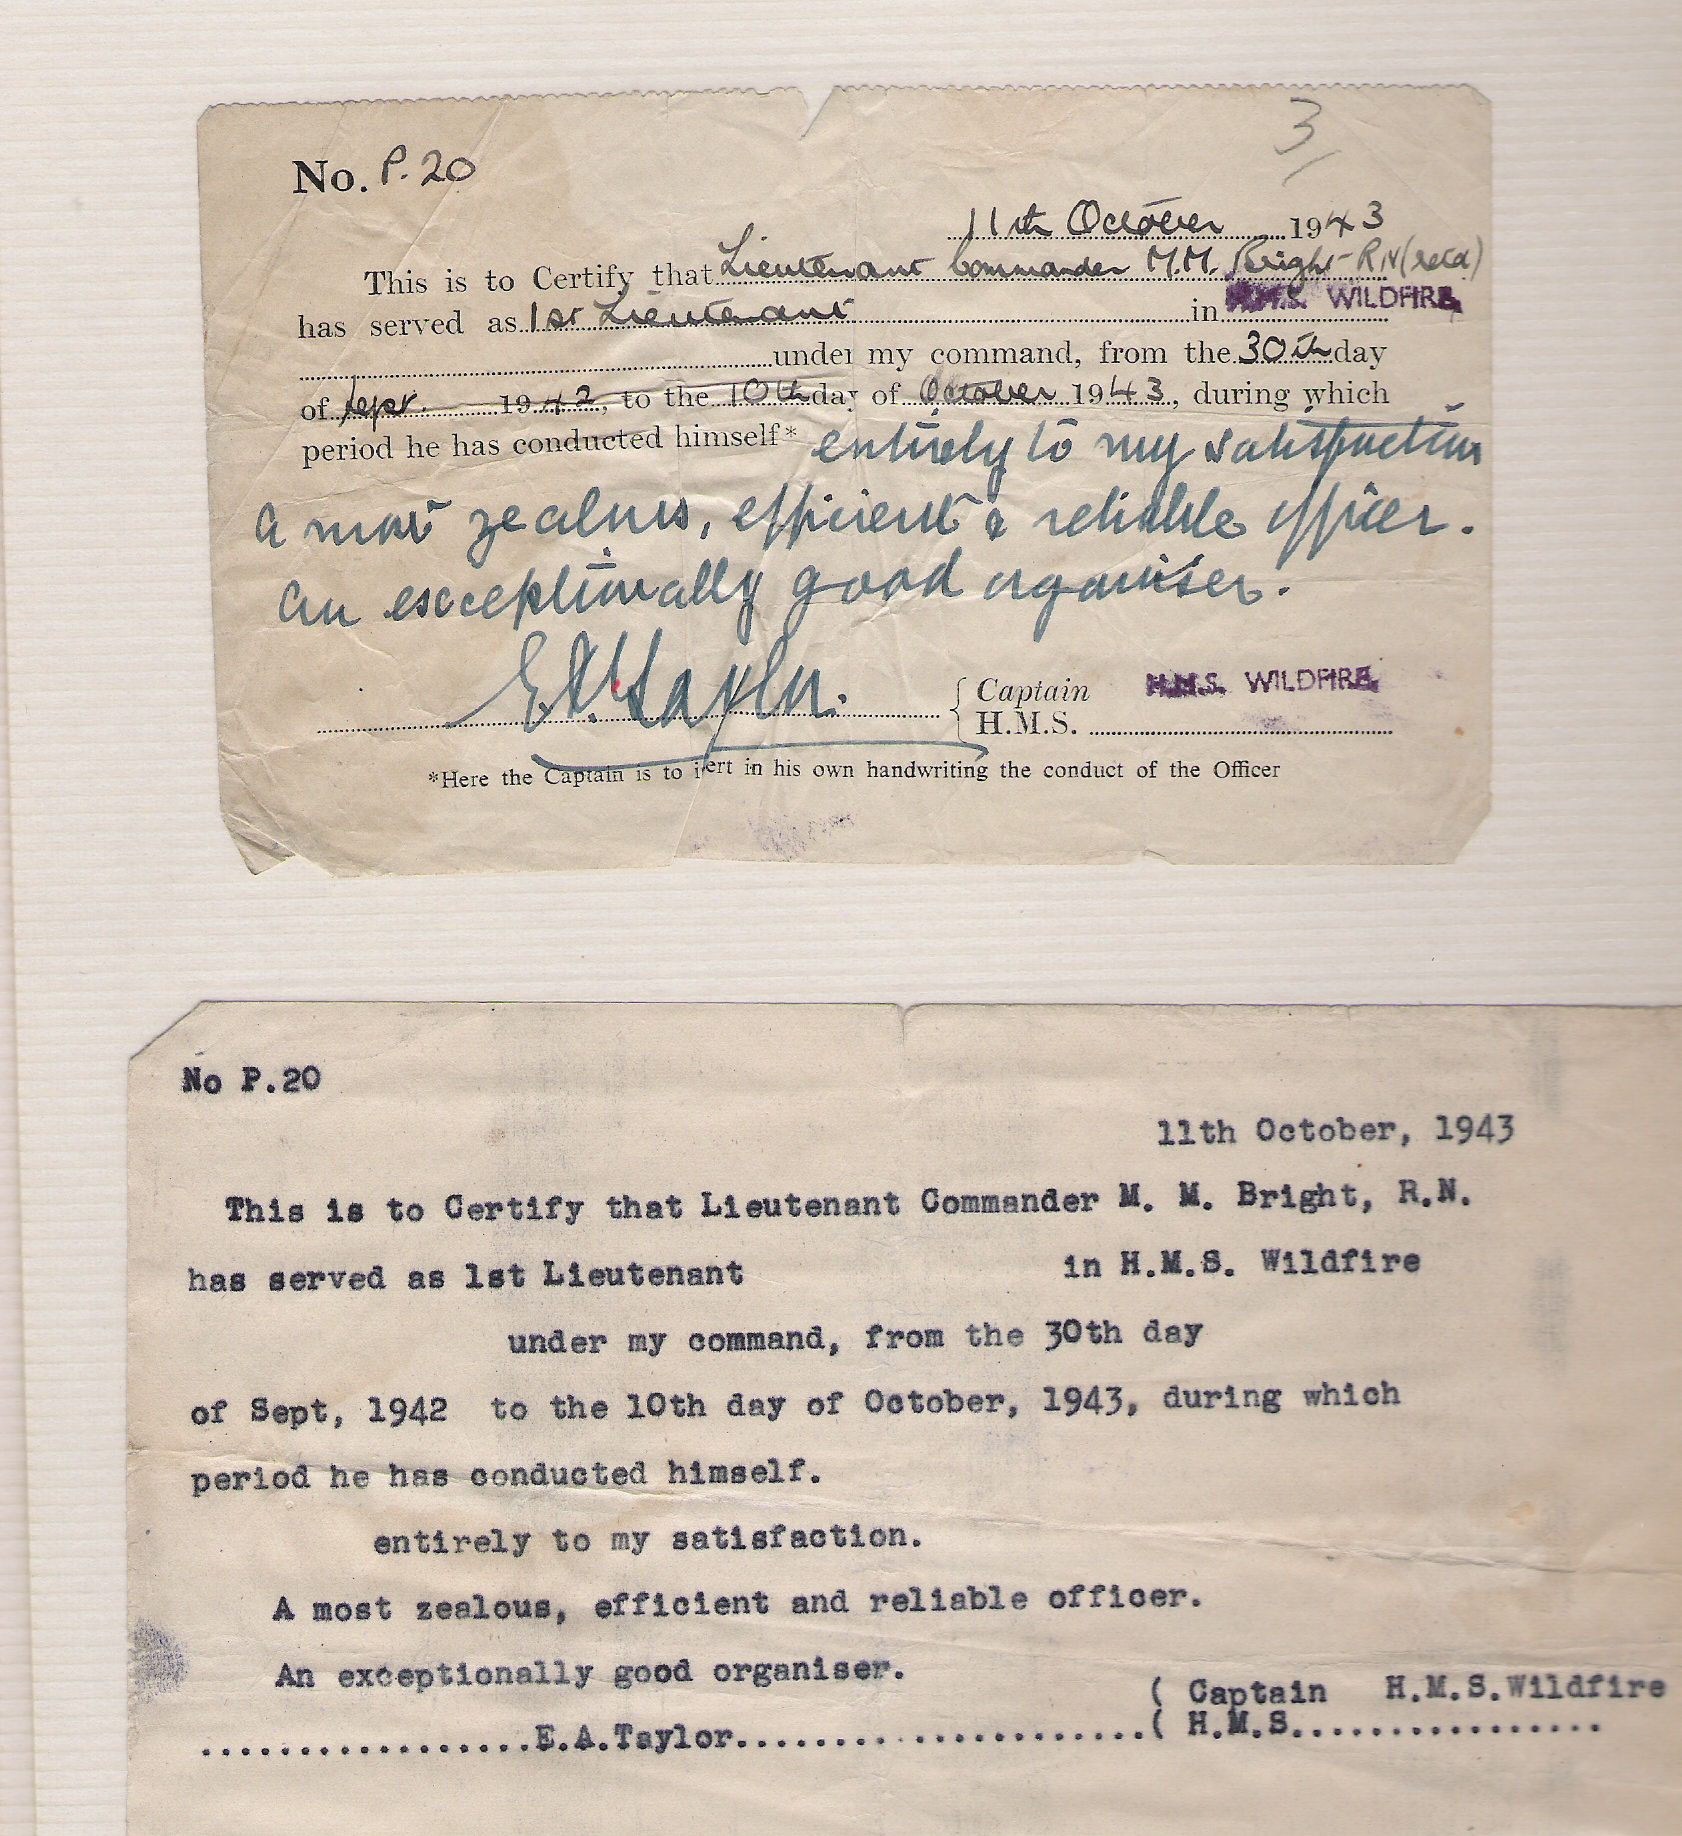 3/
No. P.20
11th October 1943
This is to Certify that Lieutenant Commander M.M. Bright - RN (retd)
has served as 1st Lieutenant in H.M.S. WILDFIRE.
under my command, from the 30th day
of Sept. 1942, to the 10th day of October 1943, during which
period he has conducted himself* entirely to my satisfaction
A most zealous, efficient & reliable officer.
An exceptionally good organiser.
E.A. Taylor. { Captain H.M.S. WILDFIRE.
H.M.S.
*Here the Captain is to i ert in his own handwriting the conduct of the Officer
No P.20
11th October, 1943
This is to Certify that Lieutenant Commander M. M. Bright, R.N.
has served as 1st Lieutenant in H.M.S. Wildfire
under my command, from the 30th day
of Sept, 1942 to the 10th day of October, 1943, during which
period he has conducted himself.
entirely to my satisfaction.
A most zealous, efficient and reliable officer.
An exceptionally good organiser.
( Captain H.M.S.Wildfire
..................E.A.Taylor......................( H.M.S................